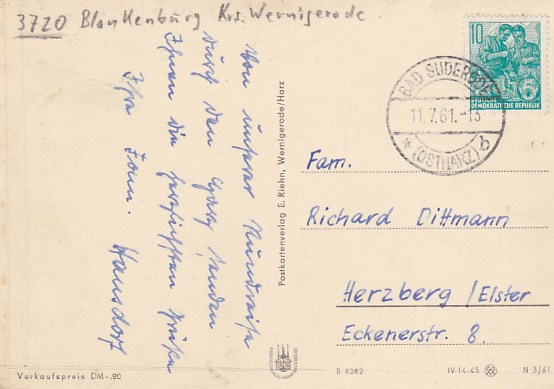 3720 Blankenburg Krs. Wernigerode
Von unserer Rundreise
durch den Harz senden
Ihnen die herzlichsten Grüße
Ihre Fam. Hansdorf
Postkartenverlag E. Riehn, Wernigerode/Harz
10
DEUTSCHE
DEMOKRATISCHE REPUBLIK
BAD SUDERODE
11.7.61.-15
(OSTHARZ) b
Fam.
Richard Dittmann
Herzberg /Elster
Eckenerstr. 8.
Verkaufspreis DM -.20
B 6262
IV-14-45
N 3/61